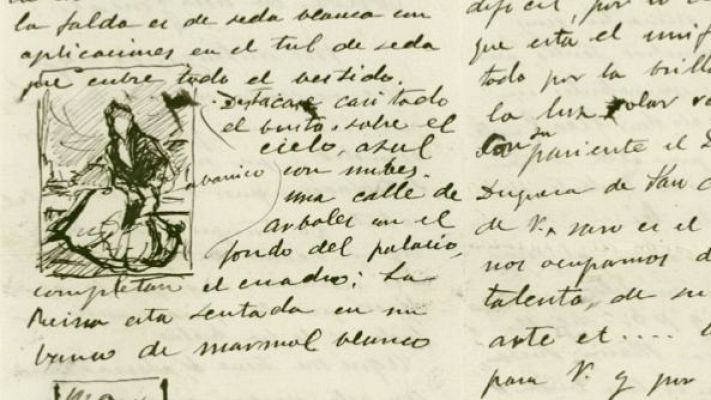 la falda es de seda blanca con
aplicaciones en el tul de seda
que cubre todo el vestido.
Destacase casi todo
el busto sobre el
cielo, azul
abanico
con nubes.
una calle de
arboles con el
fondo del palacio,
completan el cuadro; La
Reina esta sentada en un
banco de marmol blanco
dificil, por lo
que esta el unif
todo por la brilla
la luz solar
Con su pariente el D
Duquesa de San C
de V. raro es el
nos ocupamos d
talento, de su
arte et.... 
para V. y por